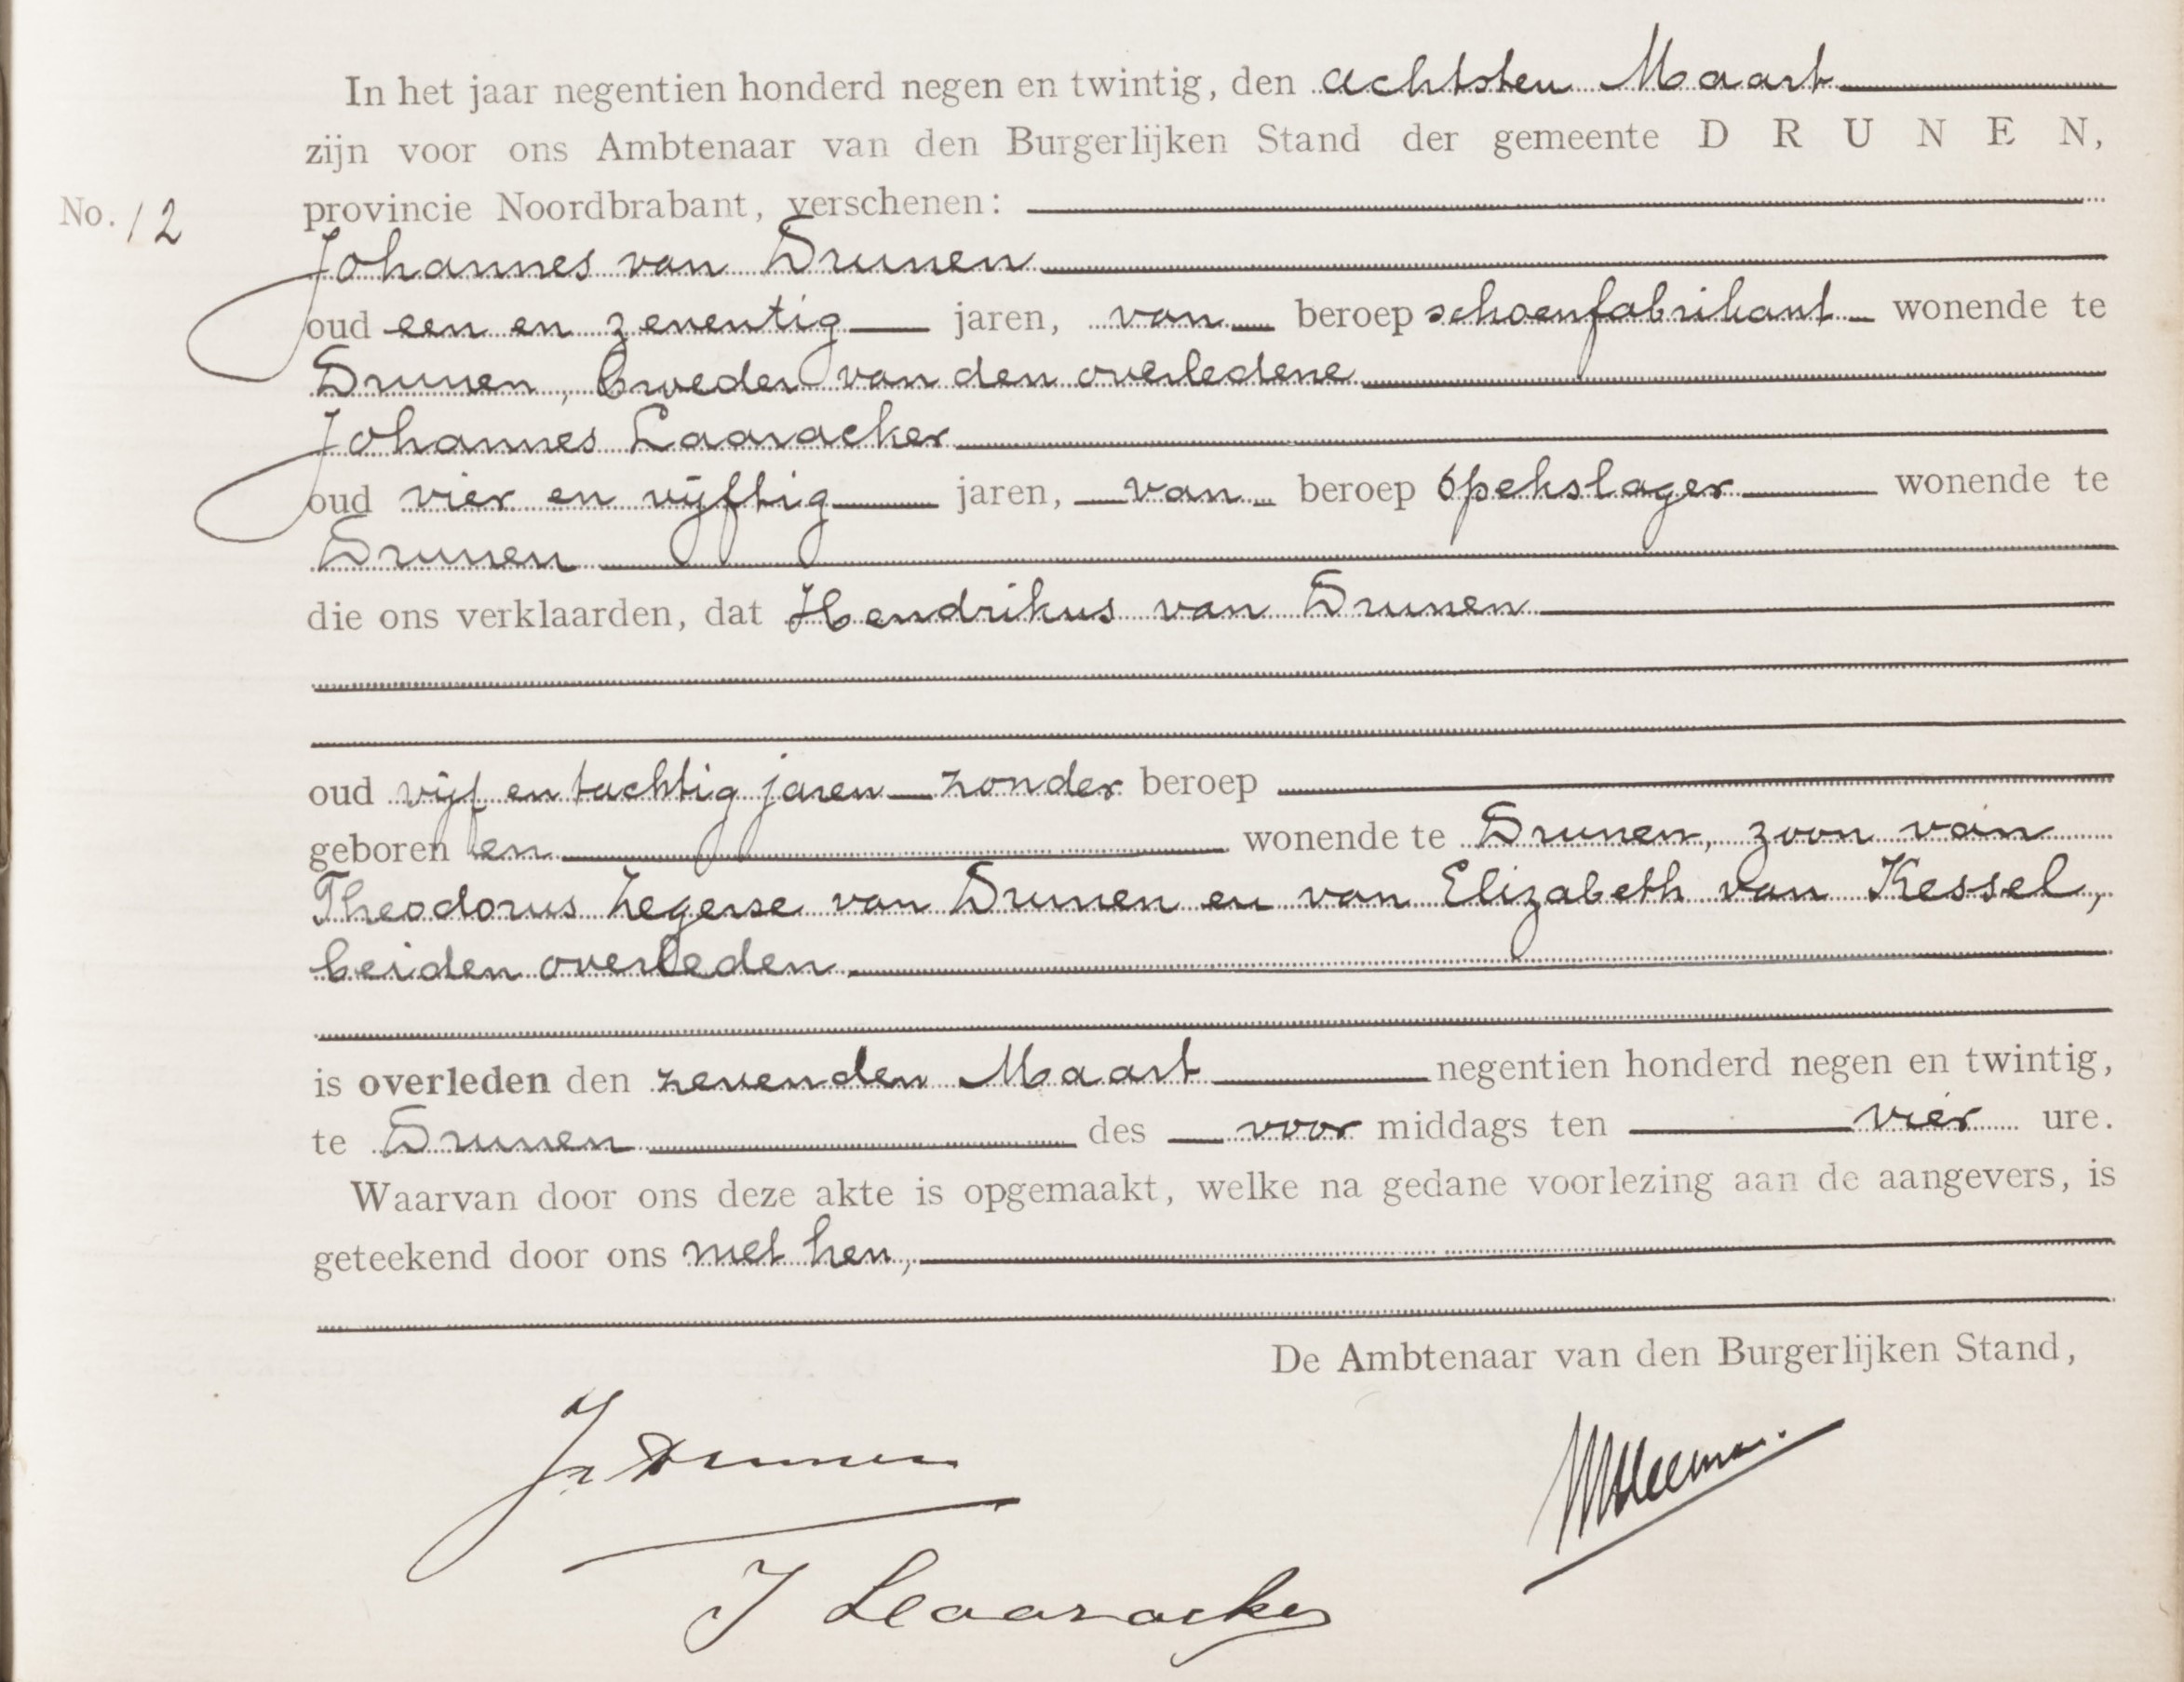 In het jaar negentien honderd negen en twintig, den achtsten Maart
zijn voor ons Ambtenaar van den Burgerlijken Stand der gemeente DRUNEN,
No. 12 provincie Noordbrabant, verschenen:
Johannes van Drunen
oud een en zeventig jaren, van beroep schoenfabrikant wonende te
Drunen, broeder van den overledene
Johannes Laaracker
oud vier en vijftig jaren, van beroep spekslager wonende te
Drunen
die ons verklaarden, dat Hendrikus van Drunen
oud vijf en tachtig jaren zonder beroep
geboren en wonende te Drunen, zoon van
Theodorus Zegerse van Drunen en van Elizabeth van Kessel,
beiden overleden.
is overleden den zevenden Maart negentien honderd negen en twintig,
te Drunen des voor middags ten vier ure.
Waarvan door ons deze akte is opgemaakt, welke na gedane voorlezing aan de aangevers, is
geteekend door ons met hen,
De Ambtenaar van den Burgerlijken Stand,
Jv Drunen
J Laaracker